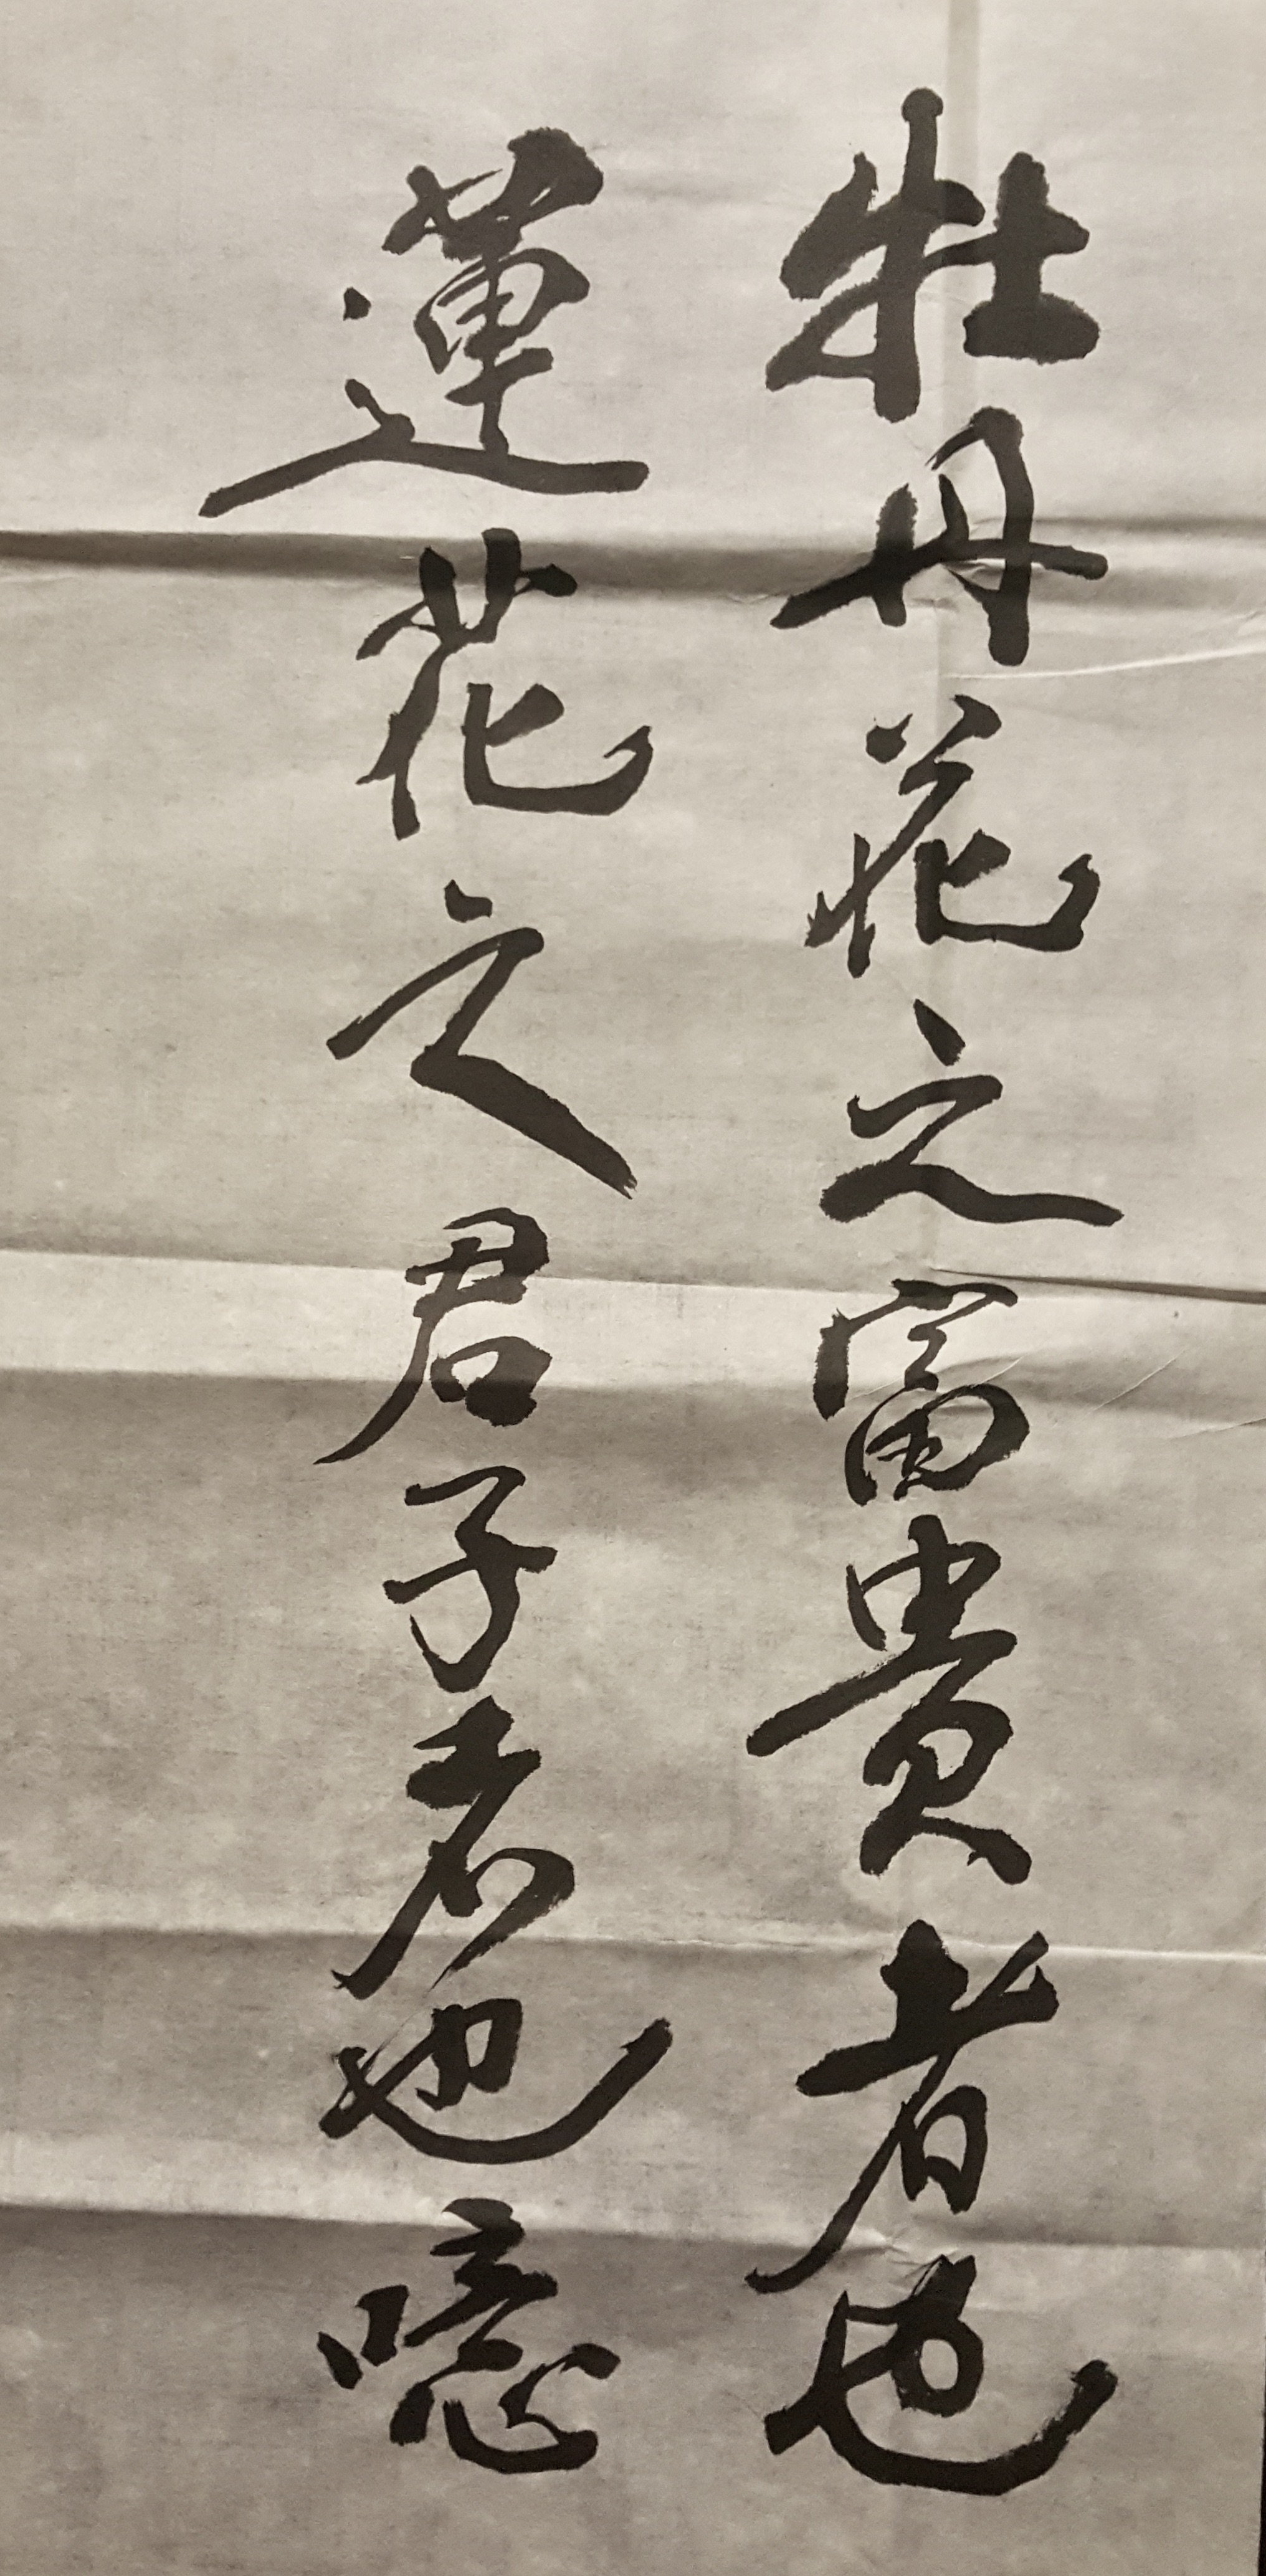 牡丹花之富貴者也
蓮花之君子者也噫